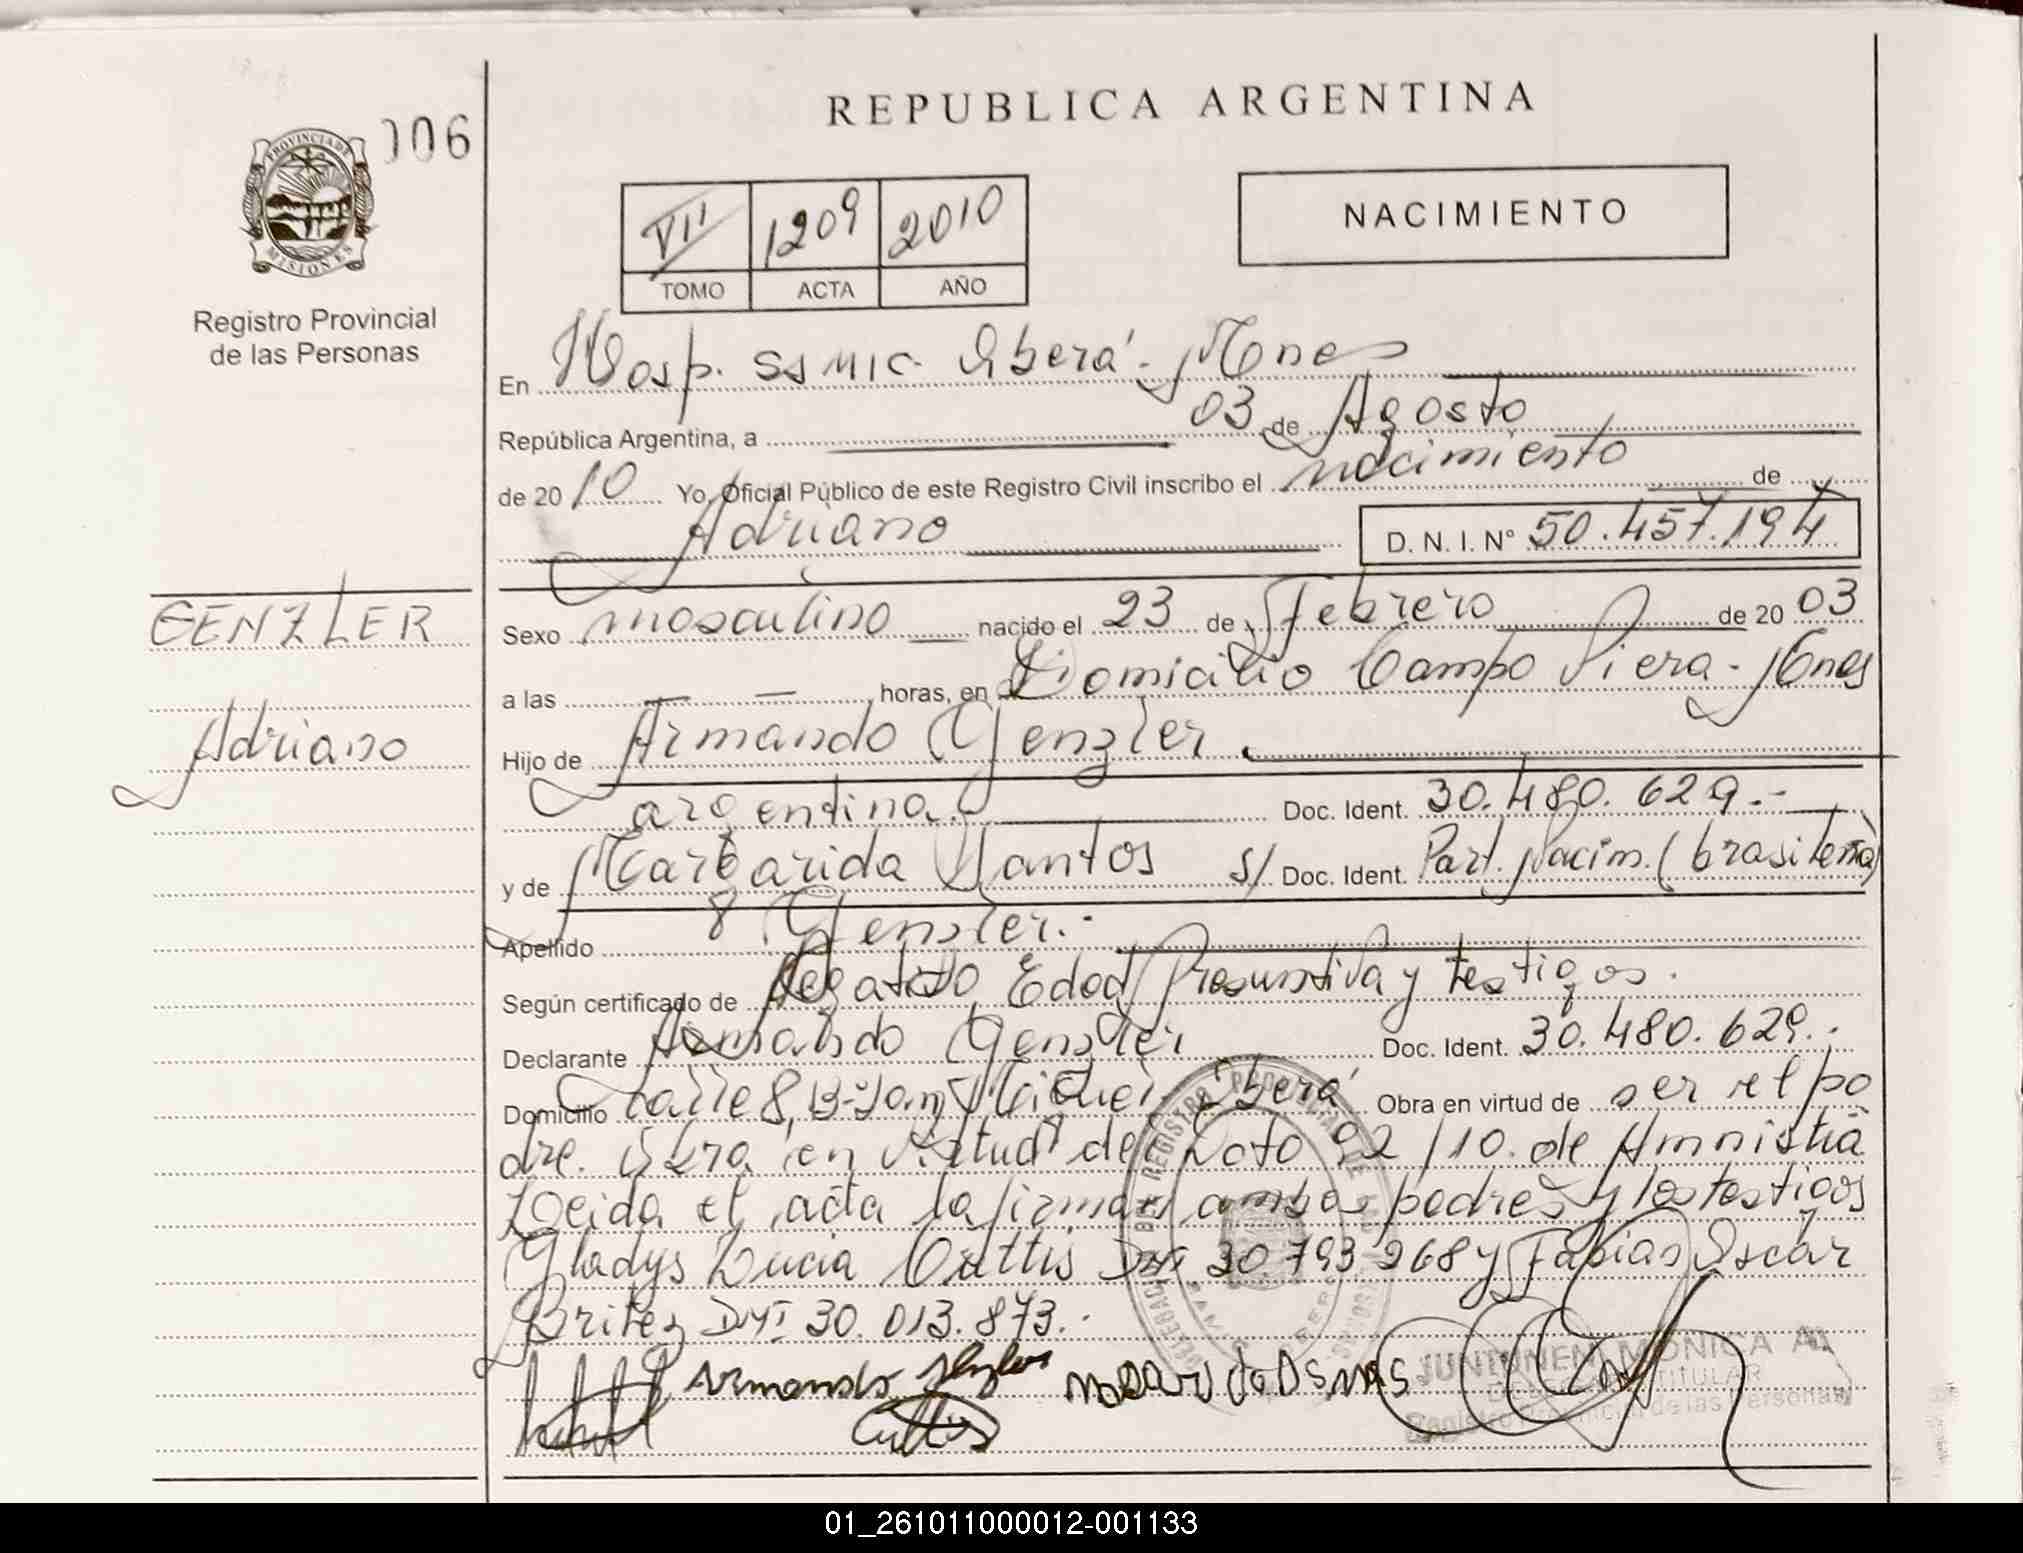 REPUBLICA ARGENTINA
106
PROVINCIA DE
MISIONES
Registro Provincial
de las Personas
VII 1209 2010
TOMO ACTA AÑO
NACIMIENTO
En Hosp. SSMIC. Oberá - Mnes
República Argentina, a 03 de Agosto
de 2010 Yo, Oficial Público de este Registro Civil inscribo el nacimiento de
Adriano
D. N. I. N° 50.457.194
GENZLER
Adriano
Sexo masculino nacido el 23 de Febrero de 2003
a las — — horas, en Domicilio Campo Viera - Mnes
Hijo de Armando Genzler
argentina. Doc. Ident. 30.480.629.-
y de Margarida Santos S/ Doc. Ident. Part. Nacim. (brasileña)
Apellido Genzler.-
Según certificado de Negativo, Edad Presuntiva y testigos.
Declarante Armando Genzler Doc. Ident. 30.480.629.-
Domicilio Calle 8, B- San Miguel Oberá Obra en virtud de ser el pa
dre. Obra en virtud del Dcto 92/10. de Amnistia
Leida el acta la firman ambos padres y los testigos
Gladys Lucia DNI 30.793.268 y Fabian Oscar
Britez DNI 30.013.873.-
Armando
JUNTUNEN MONICA A.
TITULAR
Registro Provincial de las Personas
01_261011000012-001133